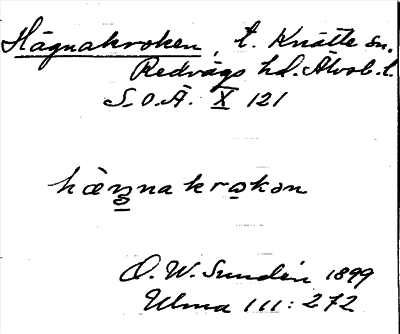 Hägnakroken, t. Knätte sn.
Redvägs hd. Älvsb. l.
S.O.Ä. X 121
hæ̀ŋnakrokən
O. W. Sundén 1899
Ulma 111:272